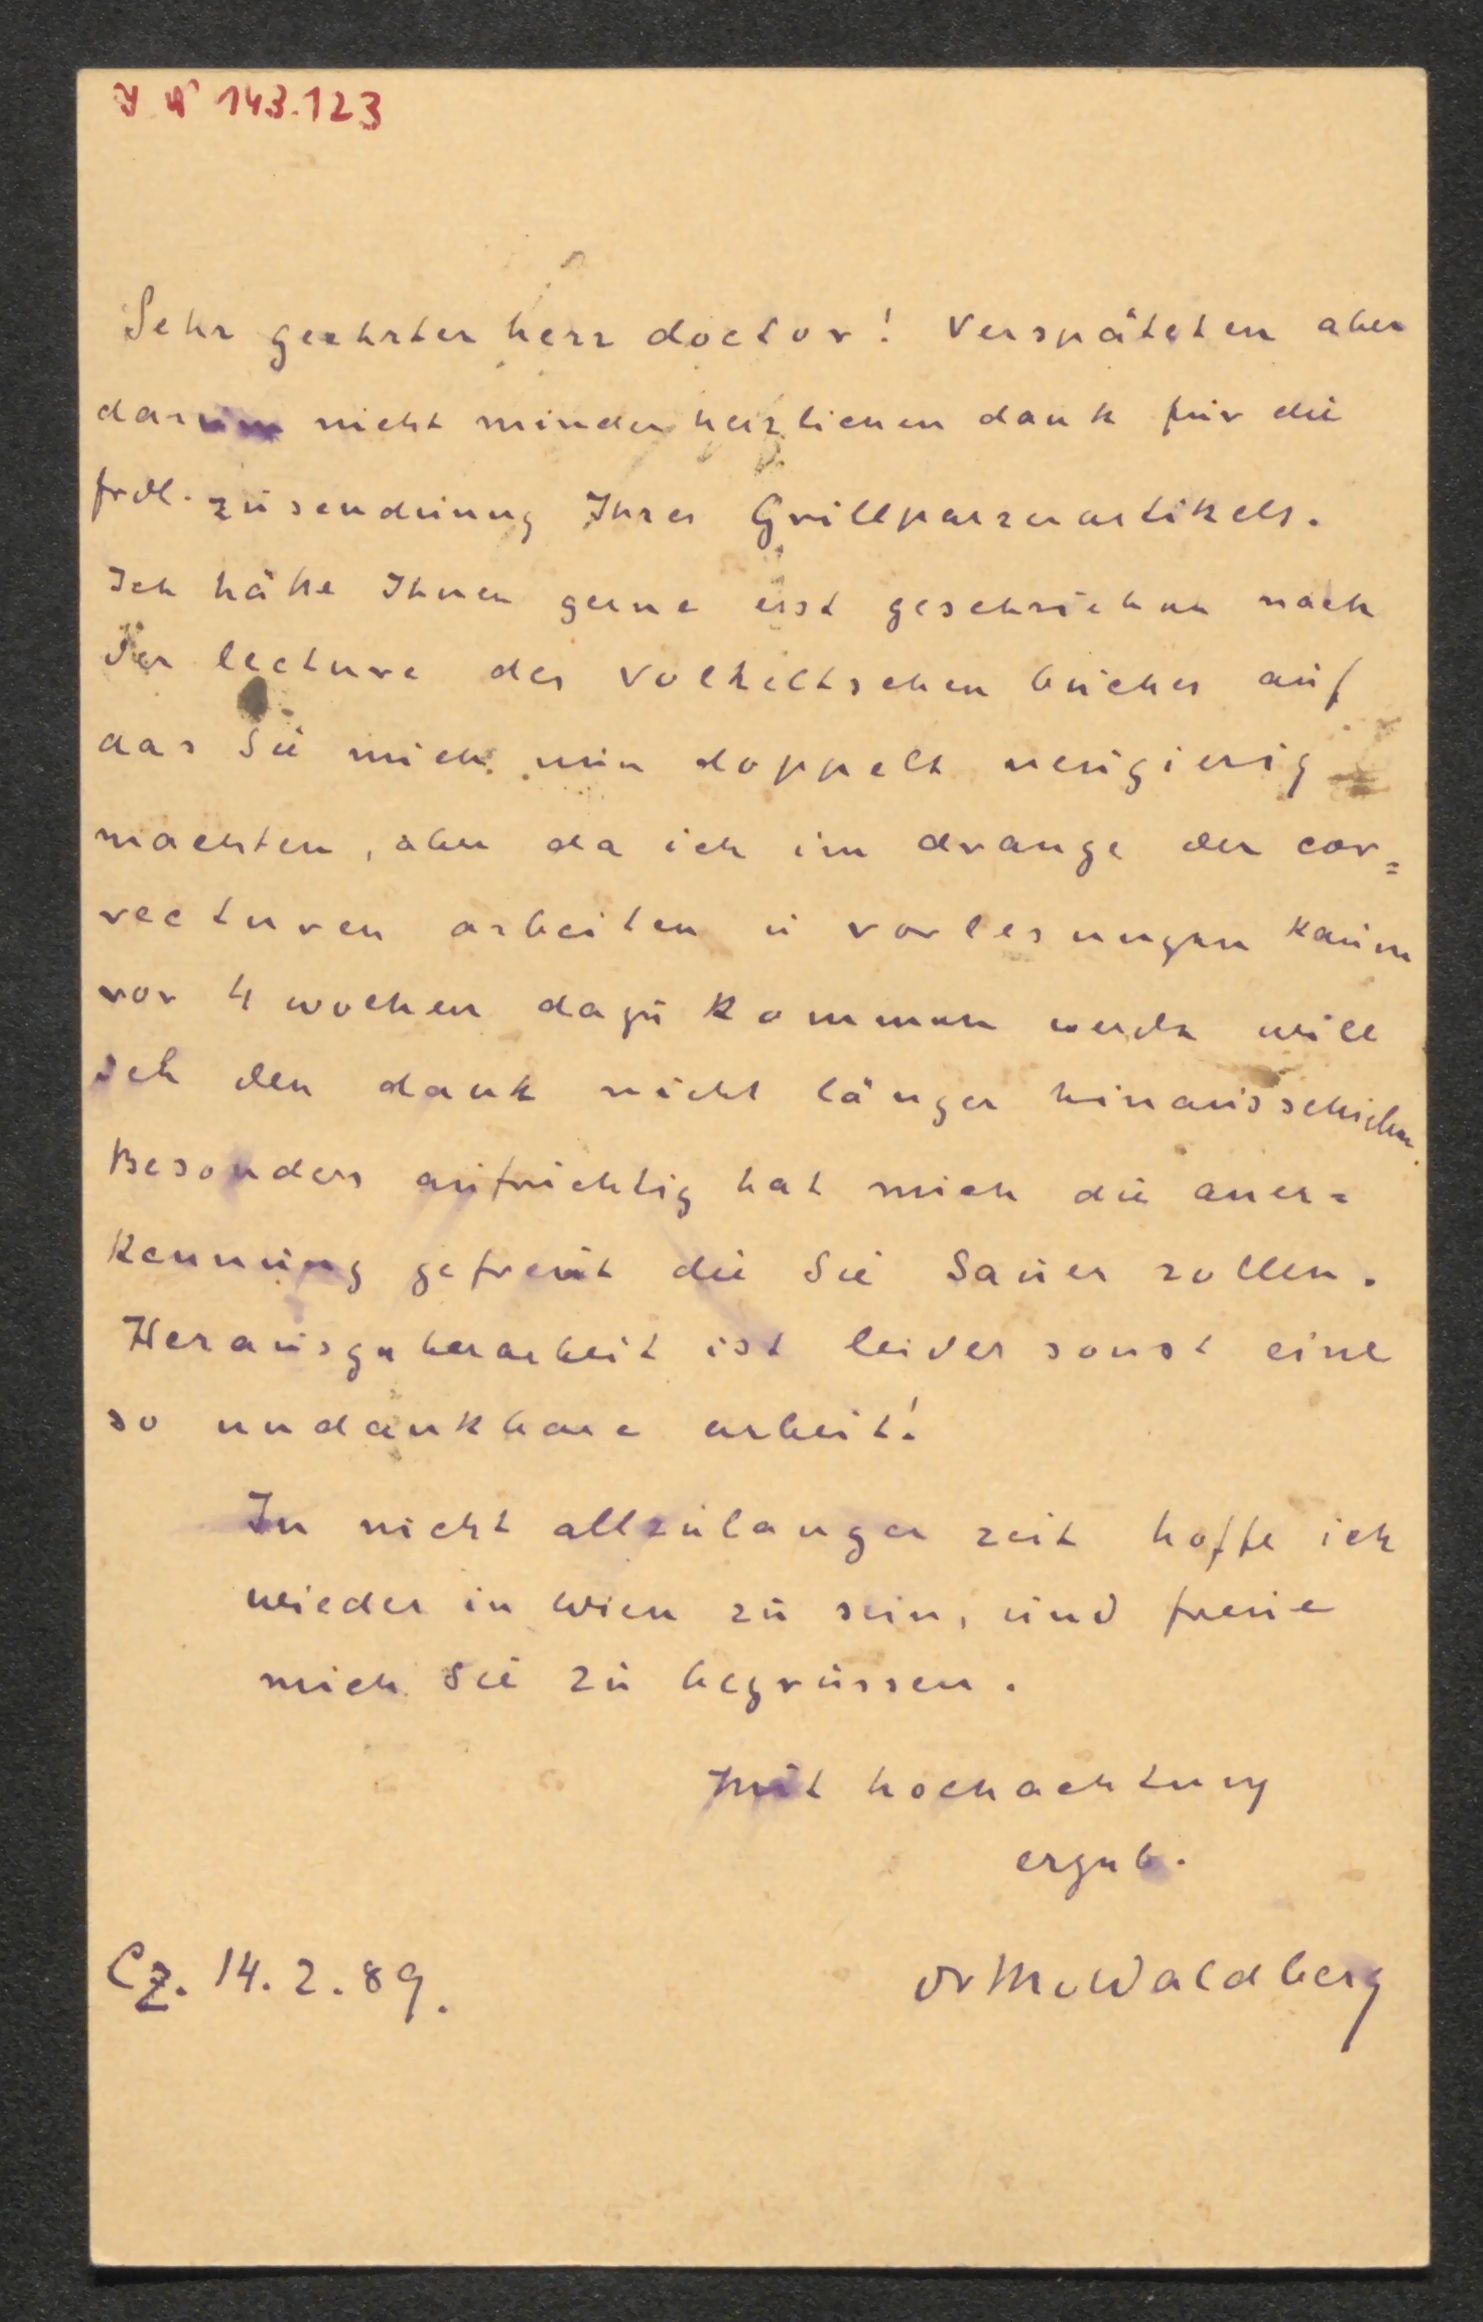 J N 143.123
Sehr geehrter herr doctor! Verspäteten aber
darum nicht minder herzlichen dank für die
frdl. zusendung Ihres Grillparzerartikels.
Ich hätte Ihnen gerne erst geschrieben nach
der lecture des Volkeltschen buches auf
das Sie mich nun doppelt neugierig
machten, aber da ich im drange der cor=
recturen arbeiten u vorlesungen kaum
vor 4 wochen dazu kommen werde will
ich den dank nicht länger hinausschieben.
Besonders aufrichtig hat mich die aner=
kennung gefreut die Sie Sauer zollen.
Herausgeberarbeit ist leider sonst eine
so undankbare arbeit!
In nicht allzulanger zeit hoffe ich
wieder in Wien zu sein, und freue
mich Sie zu begrüssen.
Mit hochachtung
ergeb.
Cz. 14.2.89.
Dr MvWaldberg